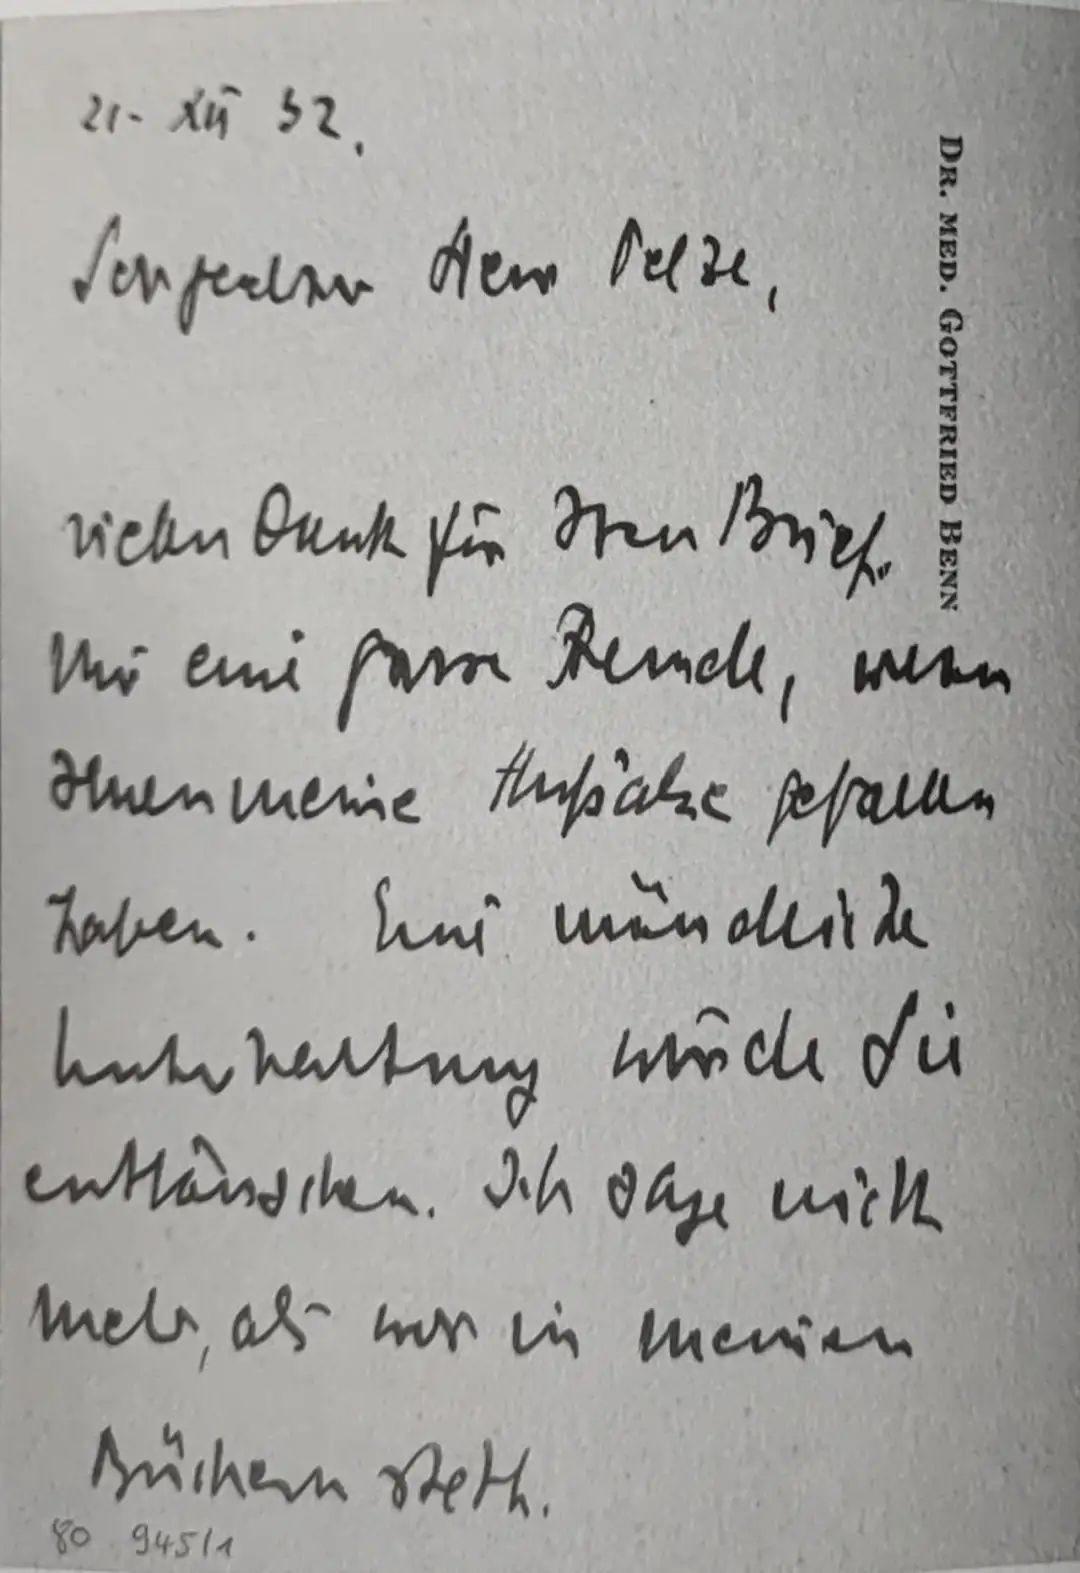 21. XII 32.
DR. MED. GOTTFRIED BENN
Sehr geehrter Herr Oelze,
vielen Dank für Ihren Brief.
Mir eine grosse Freude, wenn
Ihnen meine Aufsätze gefallen
haben. Eine mündliche
Unterhaltung würde Sie
enttäuschen. Ich sage nicht
mehr, als was in meinen
Büchern steht.
80 945/1